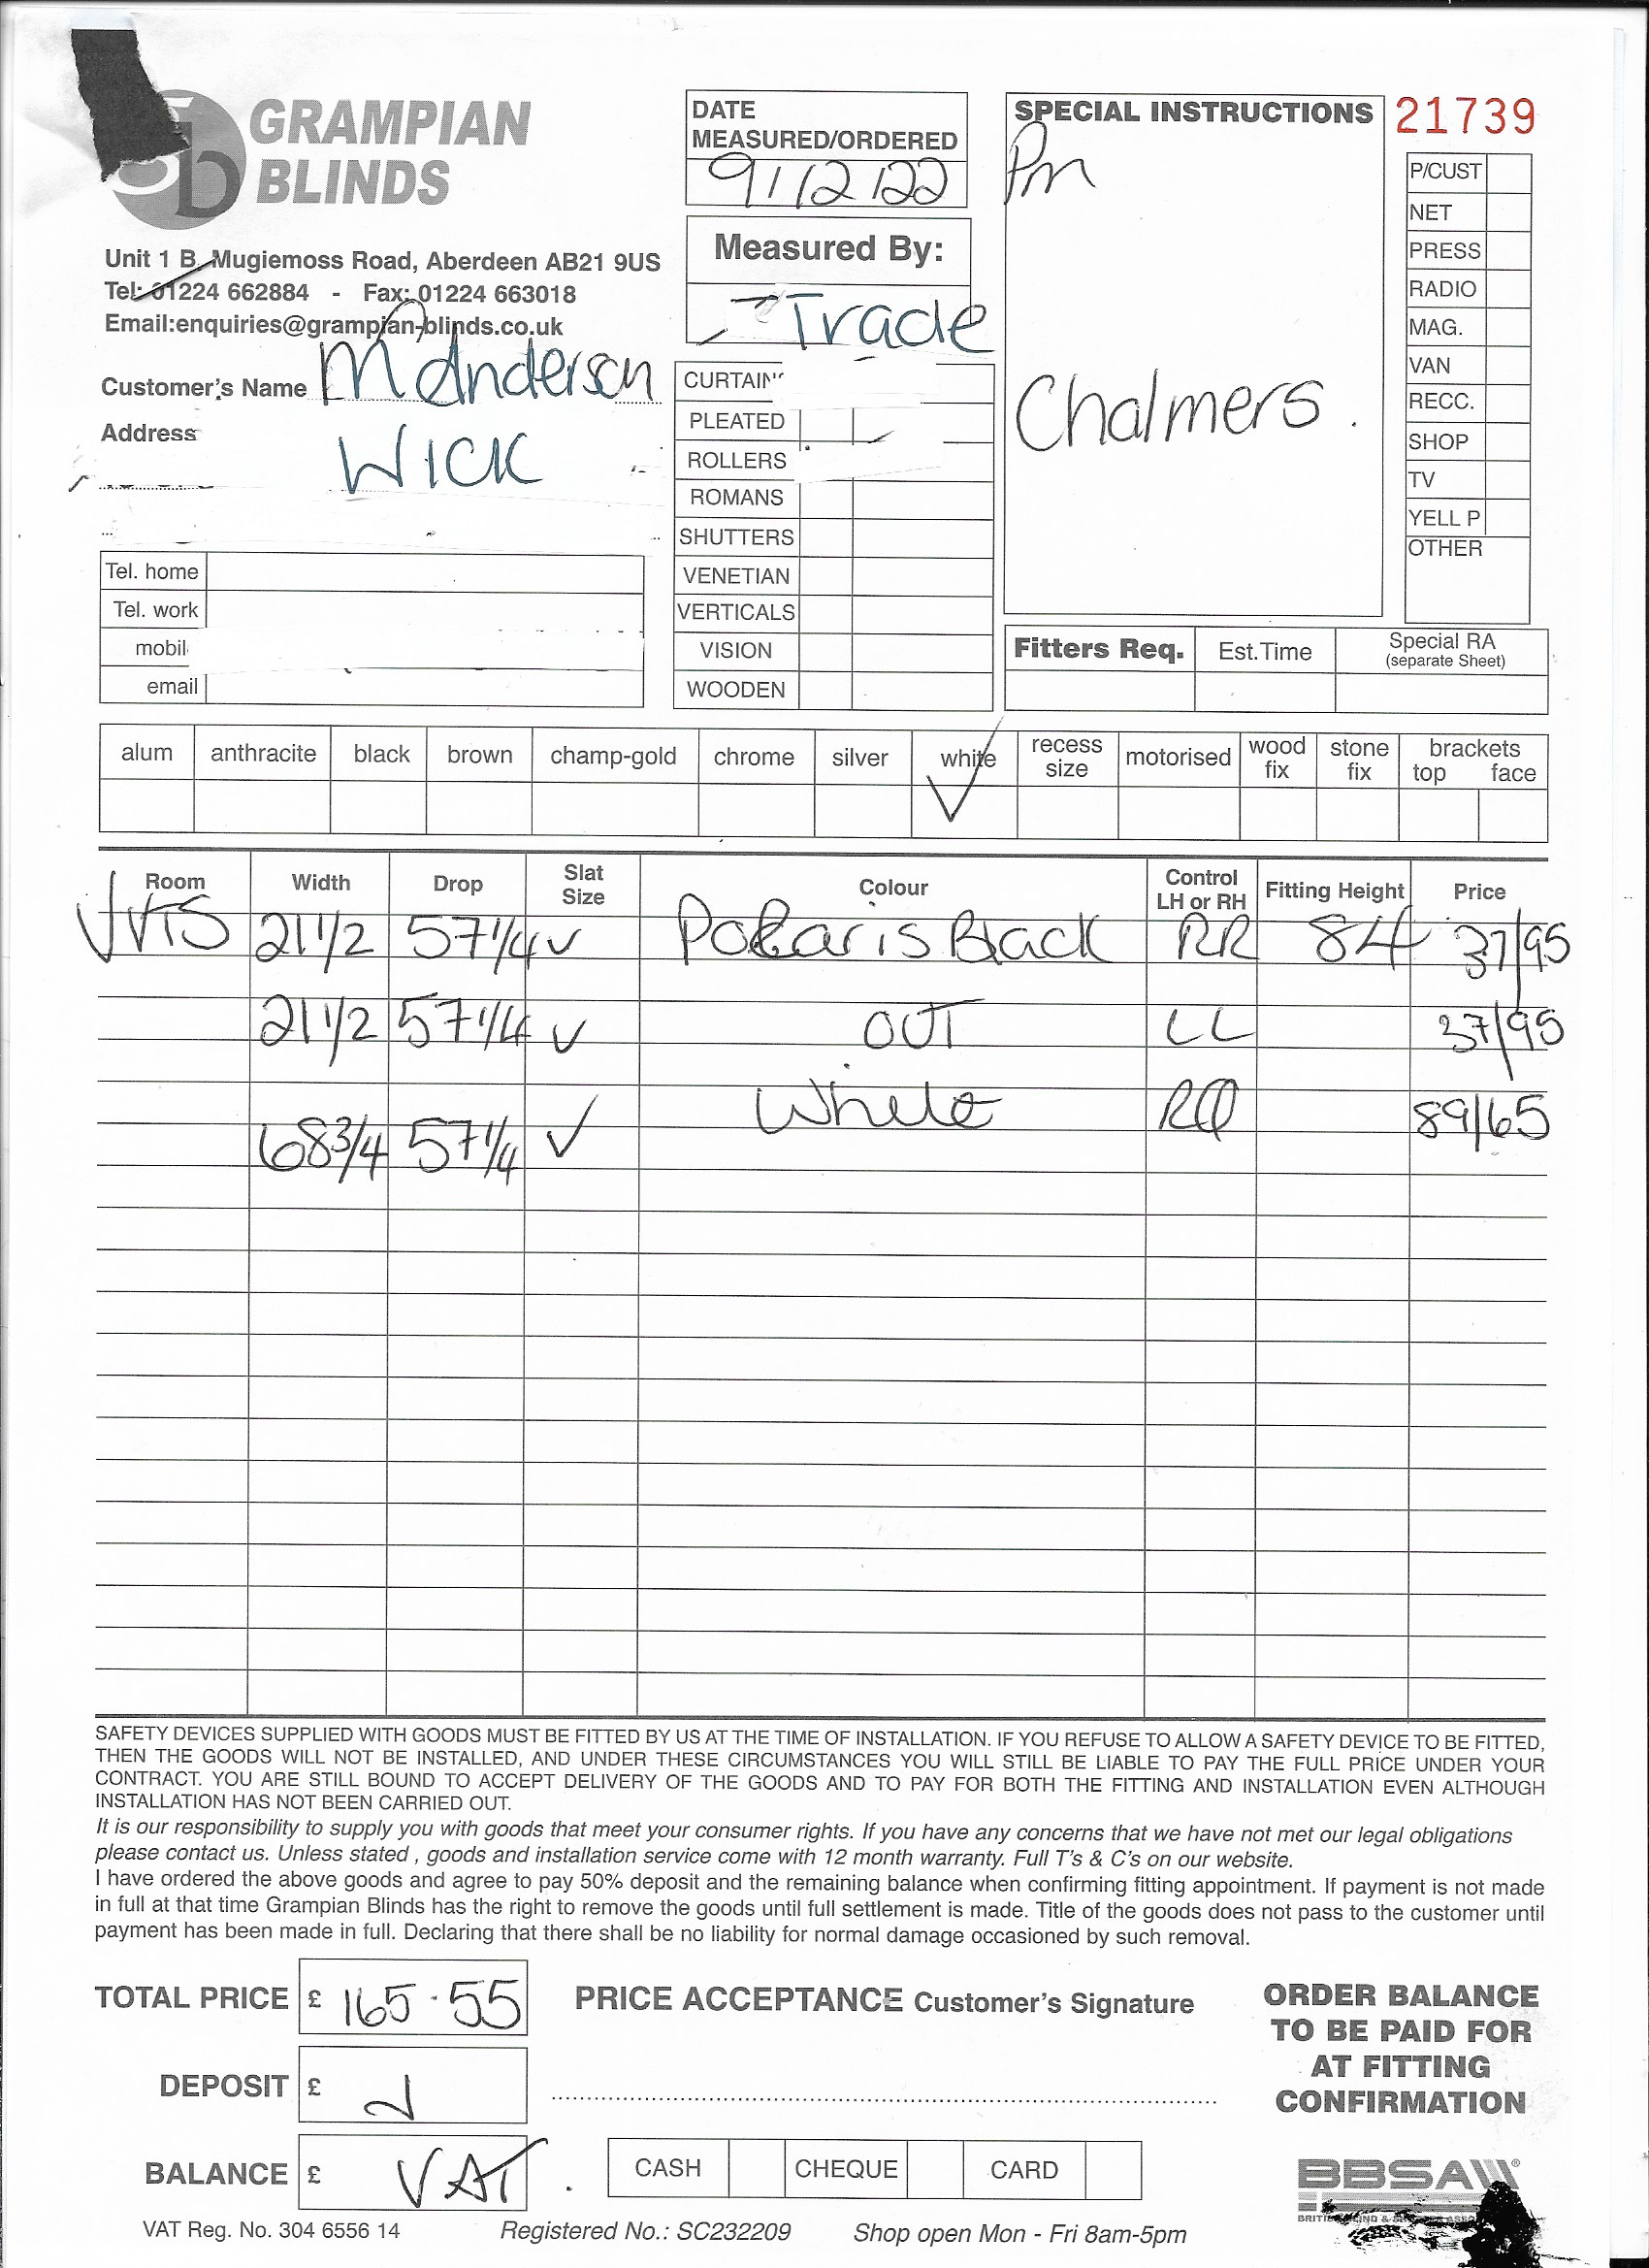 GRAMPIAN
BLINDS
Unit 1 B, Mugiemoss Road, Aberdeen AB21 9US
Tel: 01224 662884 - Fax: 01224 663018
Email:enquiries@grampian-blinds.co.uk
Customer's Name M Anderson
Address WICK
Tel. home
Tel. work
mobil
email
DATE
MEASURED/ORDERED
9/12/22
Measured By:
Trade
CURTAIN
PLEATED
ROLLERS
ROMANS
SHUTTERS
VENETIAN
VERTICALS
VISION
WOODEN
SPECIAL INSTRUCTIONS
Pm
Chalmers.
21739
P/CUST
NET
PRESS
RADIO
MAG.
VAN
RECC.
SHOP
TV
YELL P
OTHER
Fitters Req. Est.Time Special RA
(separate Sheet)
alum anthracite black brown champ-gold chrome silver white recess size motorised wood fix stone fix brackets top face
Room Width Drop Slat Size Colour Control LH or RH Fitting Height Price
21 1/2 57 1/4 ✓ Polaris Black RR 84 37/95
21 1/2 57 1/4 ✓ OUT LL 37/95
68 3/4 57 1/4 ✓ White RR 89/65
SAFETY DEVICES SUPPLIED WITH GOODS MUST BE FITTED BY US AT THE TIME OF INSTALLATION. IF YOU REFUSE TO ALLOW A SAFETY DEVICE TO BE FITTED,
THEN THE GOODS WILL NOT BE INSTALLED, AND UNDER THESE CIRCUMSTANCES YOU WILL STILL BE LIABLE TO PAY THE FULL PRICE UNDER YOUR
CONTRACT. YOU ARE STILL BOUND TO ACCEPT DELIVERY OF THE GOODS AND TO PAY FOR BOTH THE FITTING AND INSTALLATION EVEN ALTHOUGH
INSTALLATION HAS NOT BEEN CARRIED OUT.
It is our responsibility to supply you with goods that meet your consumer rights. If you have any concerns that we have not met our legal obligations
please contact us. Unless stated , goods and installation service come with 12 month warranty. Full T's & C's on our website.
I have ordered the above goods and agree to pay 50% deposit and the remaining balance when confirming fitting appointment. If payment is not made
in full at that time Grampian Blinds has the right to remove the goods until full settlement is made. Title of the goods does not pass to the customer until
payment has been made in full. Declaring that there shall be no liability for normal damage occasioned by such removal.
TOTAL PRICE £ 165.55
DEPOSIT £
BALANCE £ VAT.
PRICE ACCEPTANCE Customer's Signature
CASH CHEQUE CARD
ORDER BALANCE
TO BE PAID FOR
AT FITTING
CONFIRMATION
BBSA
VAT Reg. No. 304 6556 14 Registered No.: SC232209 Shop open Mon - Fri 8am-5pm